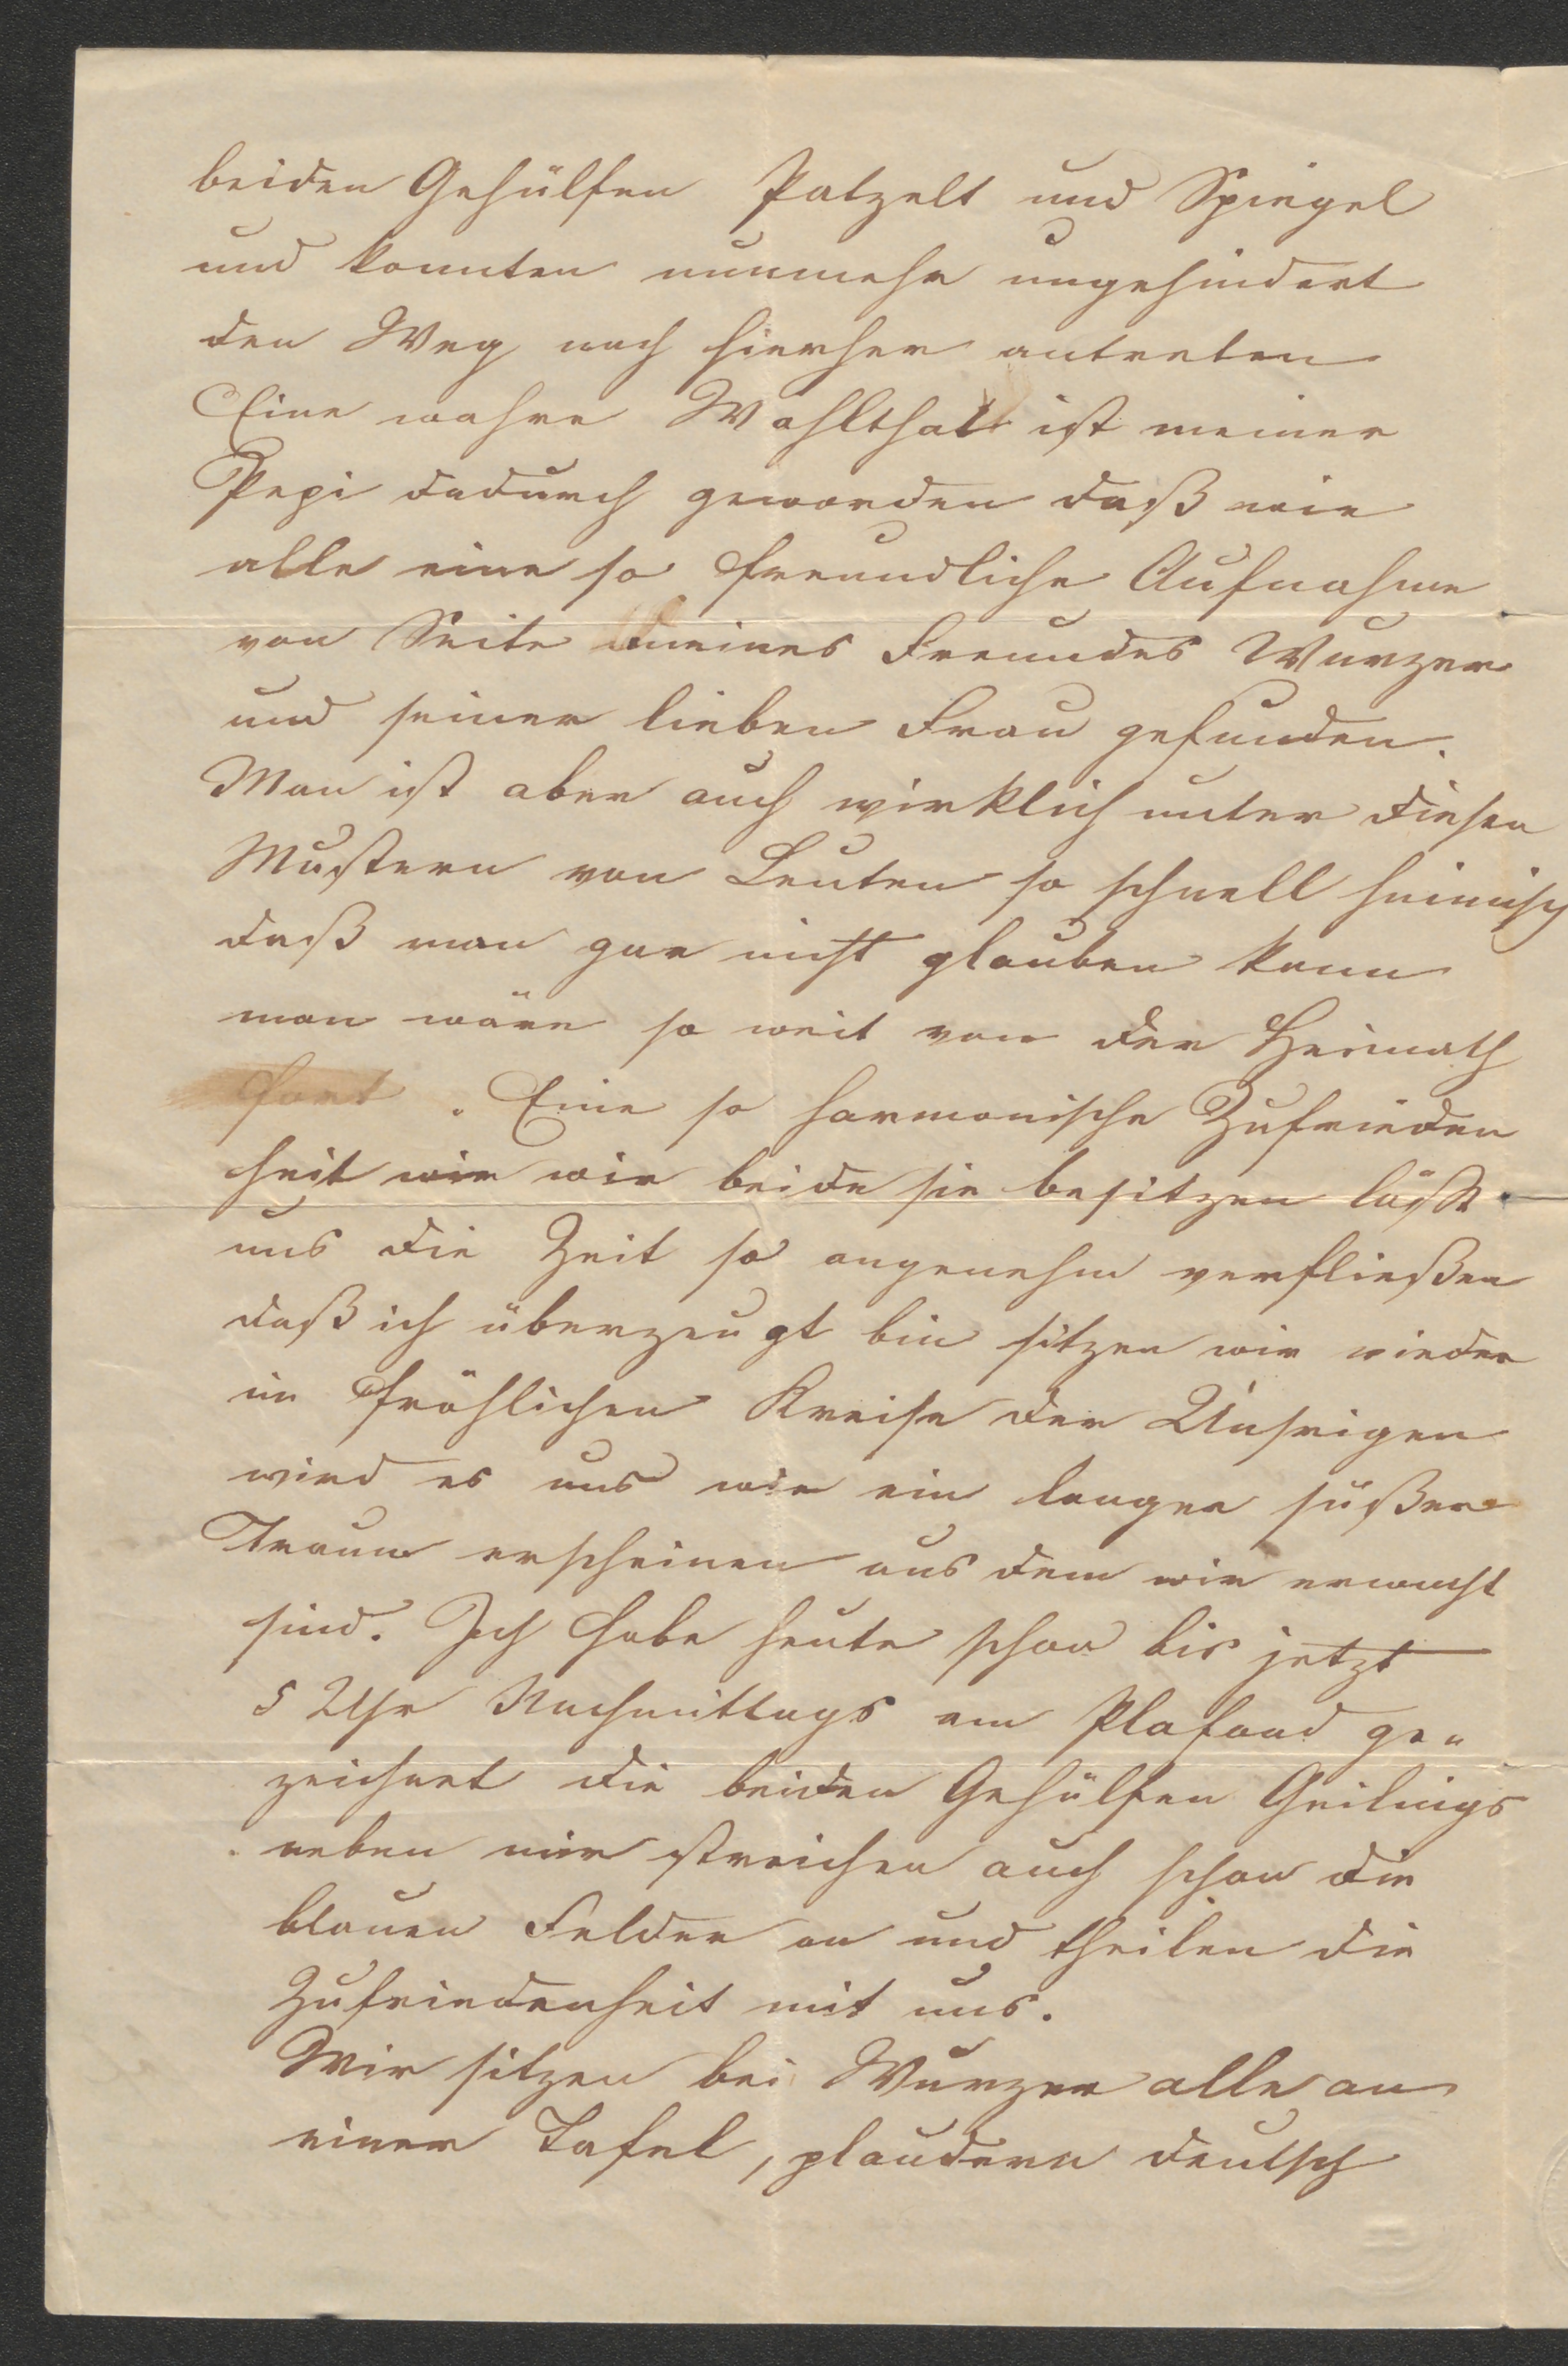 beiden Gehülfen Patzelt und Spiegel
und konnten nunmehr ungehindert
den Weg nach hierher antreten
Eine wahre Wohlthat ist meiner
Pepi dadurch geworden daß wir
alle eine so freundliche Aufnahme
von Seite meines Freundes Wurzer
und seiner lieben Frau gefunden.
Man ist aber auch wirklich unter diesen
Mustern von Leuten so schnell heimisch
daß man gar nicht glauben kann
man wäre so weit von der Heimath
fort. Eine so harmonische Zufrieden
heit wie wir beide sie besitzen läßt
uns die Zeit so angenehm verfließen
daß ich überzeugt bin sitzen wir wieder
im fröhlichen Kreise der Unsrigen
wird es uns wie ein langer süßer
Traum erscheinen aus dem wir erwacht
sind. Ich habe heute schon bis jetzt
5 Uhr Nachmittags am Plafond ge„
zeichnet die beiden Gehülfen Geilings
neben mir streichen auch schon die
blauen Felder an und theilen die
Zufriedenheit mit uns.
Wir sitzen bei Wurzer alle an
einer Tafel, plaudern deutsch